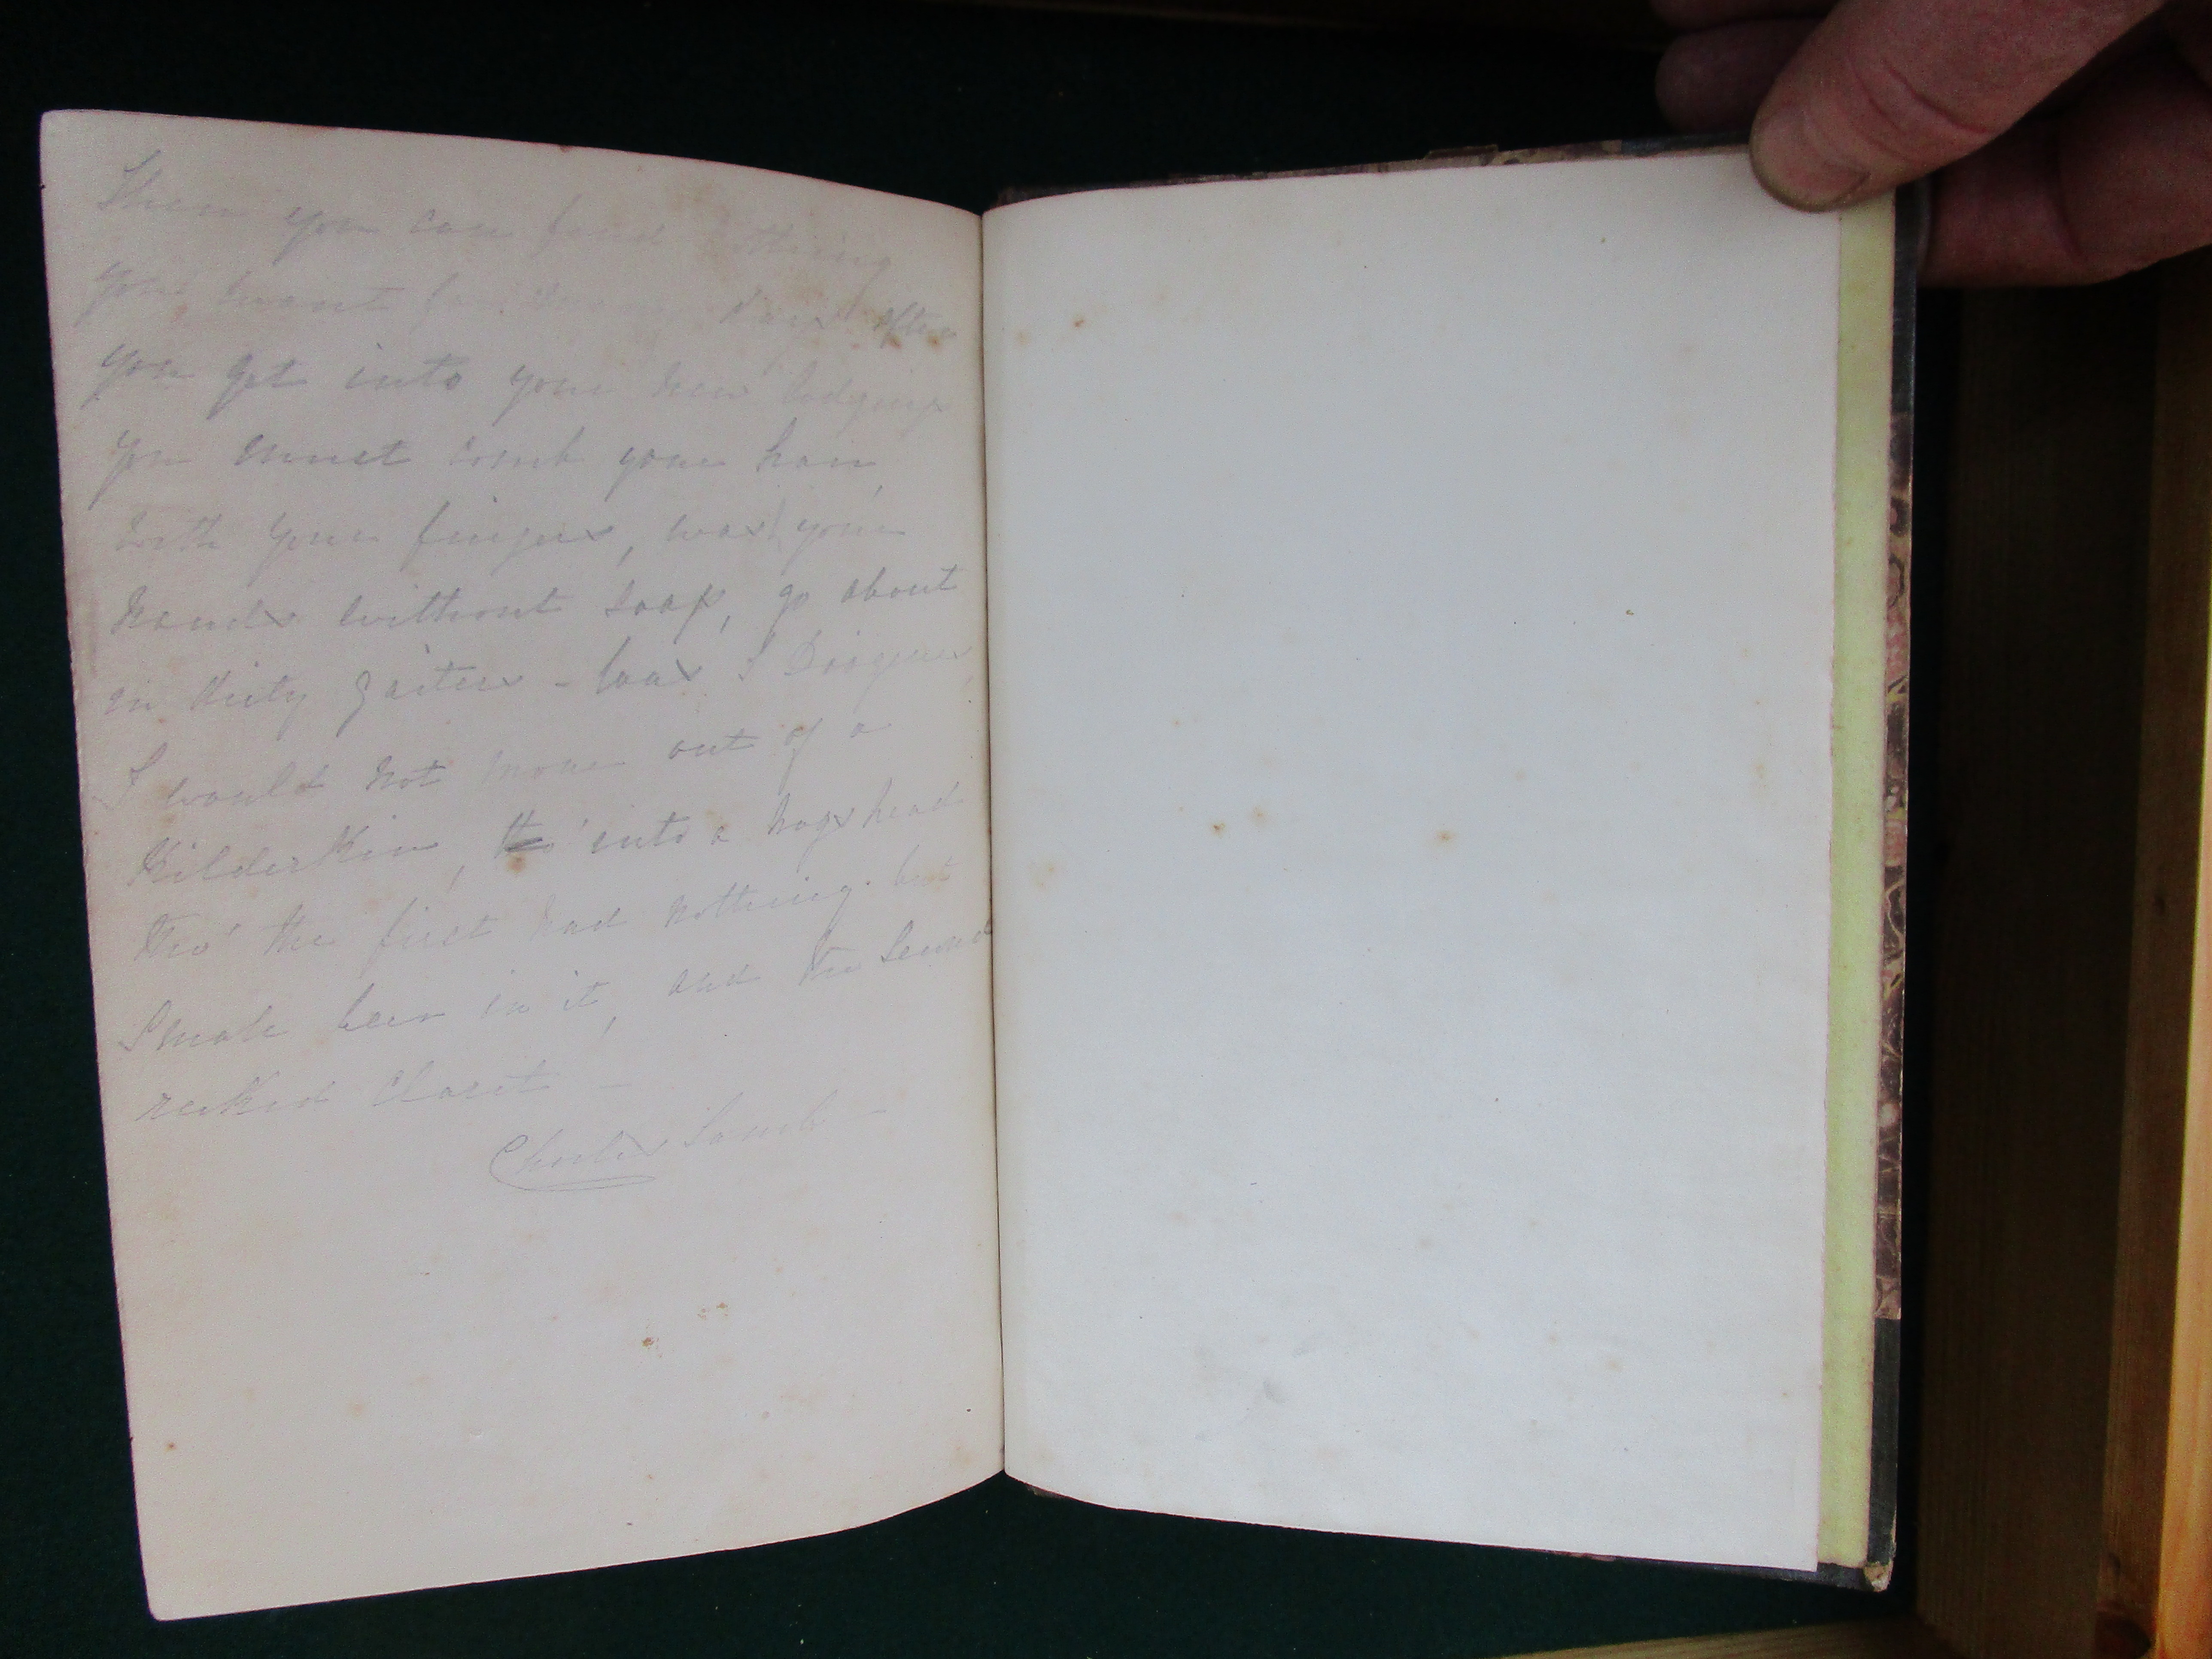 Then you can find nothing
you want for many days after
you get into your new lodgings
you must comb your hair
with your fingers, wash your
hands without soap, go about
in dirty gaiters - Was I Diogenes
I would not move out of a
Kilderkin, tho' into a hogshead
tho' the first had nothing but
Small beer in it, and the second
reeked Claret -
Charles Lamb -